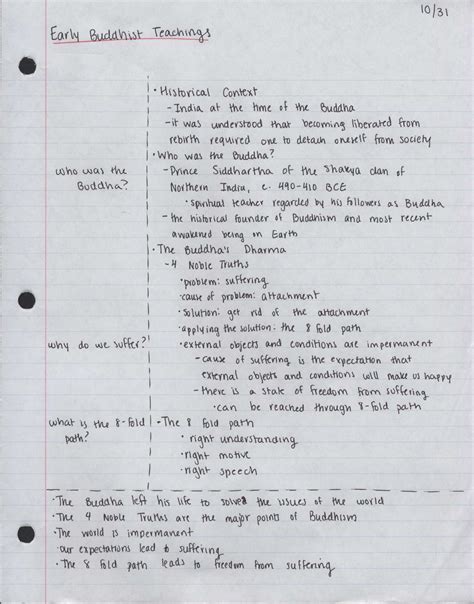 10/31
Early Buddhist Teachings
• Historical Context
- India at the time of the Buddha
- it was understood that becoming liberated from
rebirth required one to detach oneself from society
• Who was the Buddha?
who was the
Buddha?
- Prince Siddhartha of the Shakya clan of
Northern India, c. 490-410 BCE
• spiritual teacher regarded by his followers as Buddha
- the historical founder of Buddhism and most recent
awakened being on Earth
• The Buddha's Dharma
- 4 Noble Truths
• problem: suffering
• cause of problem: attachment
• solution: get rid of the attachment
• applying the solution: the 8 fold path
why do we suffer?
• external objects and conditions are impermanent
- cause of suffering is the expectation that
external objects and conditions will make us happy
- there is a state of freedom from suffering
• can be reached through 8-fold path
what is the 8-fold
path?
• The 8 fold path
• right understanding
• right motive
• right speech
• The Buddha left his life to solve the issues of the world
• The 4 Noble Truths are the major points of Buddhism
• The world is impermanent
• our expectations lead to suffering
• The 8 fold path leads to freedom from suffering